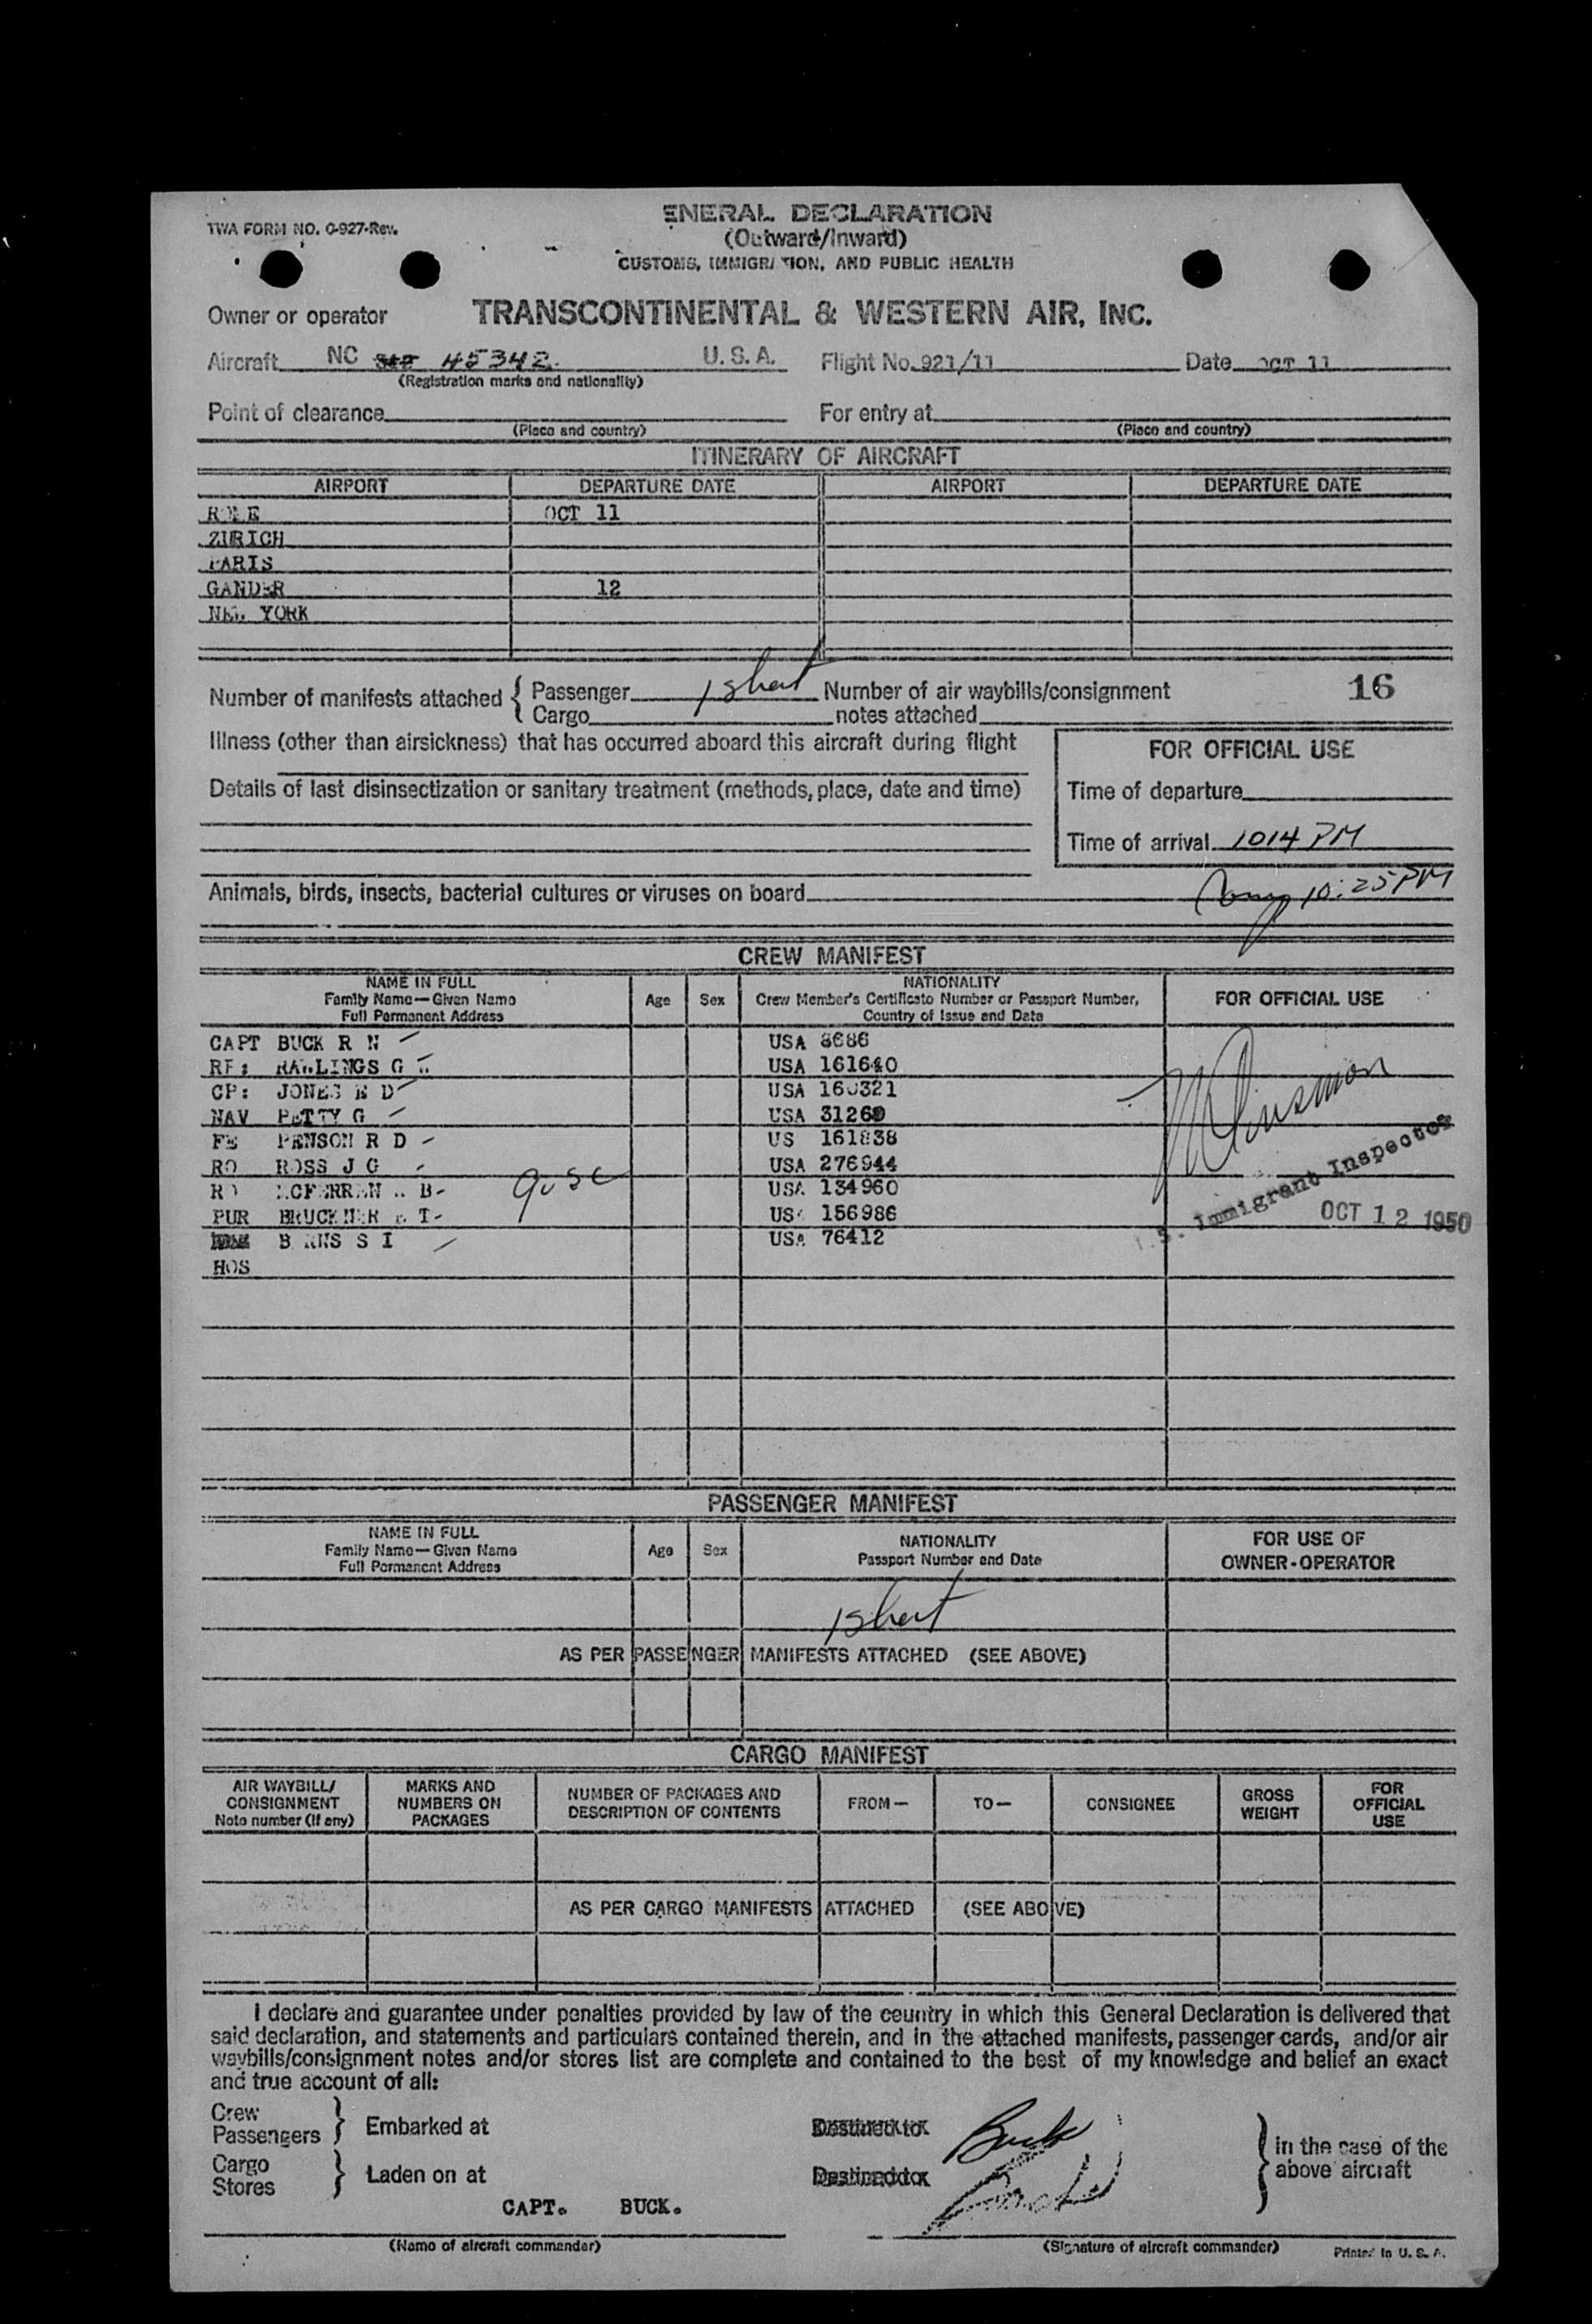 ENERAL DECLARATION
TWA FORM NO. O-927-Rev.
(Outward/Inward)
CUSTOMS, IMMIGRATION, AND PUBLIC HEALTH
Owner or operator TRANSCONTINENTAL & WESTERN AIR, INC.
Aircraft NC 45342 U.S.A. Flight No. 921/11 Date OCT 11
(Registration marks and nationality)
Point of clearance For entry at
(Place and country) (Place and country)
ITINERARY OF AIRCRAFT
AIRPORT DEPARTURE DATE AIRPORT DEPARTURE DATE
ROME OCT 11
ZURICH
PARIS
GANDER 12
NEW YORK
Number of manifests attached { Passenger 1 sheet Number of air waybills/consignment 16
Cargo notes attached
Illness (other than airsickness) that has occurred aboard this aircraft during flight
FOR OFFICIAL USE
Details of last disinsectization or sanitary treatment (methods, place, date and time)
Time of departure
Time of arrival 1014 PM
Animals, birds, insects, bacterial cultures or viruses on board
10:25 PM
CREW MANIFEST
NAME IN FULL Age Sex NATIONALITY FOR OFFICIAL USE
Family Name—Given Name Crew Member's Certificate Number or Passport Number,
Full Permanent Address Country of Issue and Date
CAPT BUCK R N USA 8686
RF: RAWLINGS G W USA 161640
CP: JONES E D USA 160321
NAV PETTY G USA 31260
FE PENSON R D US 161838
RO ROSS J G USA 276944
RO B- 9 USC USA 134960
PUR BRUCKNER E T- USA 156986
BURNS S I USA 76412
HOS
U.S. Immigrant Inspector
OCT 12 1950
PASSENGER MANIFEST
NAME IN FULL Age Sex NATIONALITY FOR USE OF
Family Name—Given Name Passport Number and Date OWNER-OPERATOR
Full Permanent Address
1 sheet
AS PER PASSENGER MANIFESTS ATTACHED (SEE ABOVE)
CARGO MANIFEST
AIR WAYBILL/ MARKS AND NUMBER OF PACKAGES AND FROM— TO— CONSIGNEE GROSS FOR
CONSIGNMENT NUMBERS ON DESCRIPTION OF CONTENTS WEIGHT OFFICIAL
Note number (if any) PACKAGES USE
AS PER CARGO MANIFESTS ATTACHED (SEE ABOVE)
I declare and guarantee under penalties provided by law of the country in which this General Declaration is delivered that
said declaration, and statements and particulars contained therein, and in the attached manifests, passenger cards, and/or air
waybills/consignment notes and/or stores list are complete and contained to the best of my knowledge and belief an exact
and true account of all:
Crew
Passengers } Embarked at Destined to Buck } in the case of the
Cargo above aircraft
Stores } Laden on at Destined to Buck
CAPT. BUCK.
(Name of aircraft commander) (Signature of aircraft commander) Printed in U. S. A.